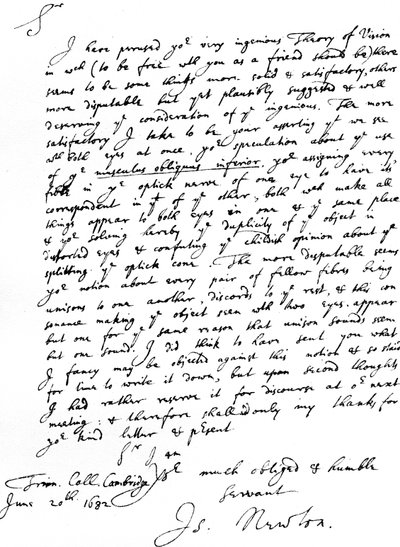 Sr
I have perused yor very ingenious Theory of Vision
in wch (to be free wth you as a friend should be) there
seems to be some things more solid & satisfactory, others
more disputable but yet plausibly suggested & well
deserving ye consideration of ye ingenious. The more
satisfactory I take to be your asserting yt we see
wth both eyes at once, yor speculation about ye use
of ye musculus obliquus inferior, yor assigning every
fibre in ye optick nerve of one eye to have its
correspondent in yt of ye other, both wch make all
things appear to both eyes in one & ye same place
& yor solving hereby ye duplicity of ye object in
distorted eyes & confuting ye childish opinion about ye
splitting ye optick cone. The more disputable seems
yor notion about every pair of fellow fibres being
unisons to one another, discords to ye rest, & this con
sonance making ye object seen with two eyes appear
but one for ye same reason that unison sounds seem
but one sound. I did think to have sent you what
I fancy may be objected against this notion & so staid
for time to write it down, but upon second thoughts
I had rather reserve it for discourse at or next
meeting: & therefore shall add only my thanks for
yor kind letter & present
Sr I am
yor much obliged & humble
Servant
Trin. Coll. Cambridge
June 20th. 1682
Is. Newton.